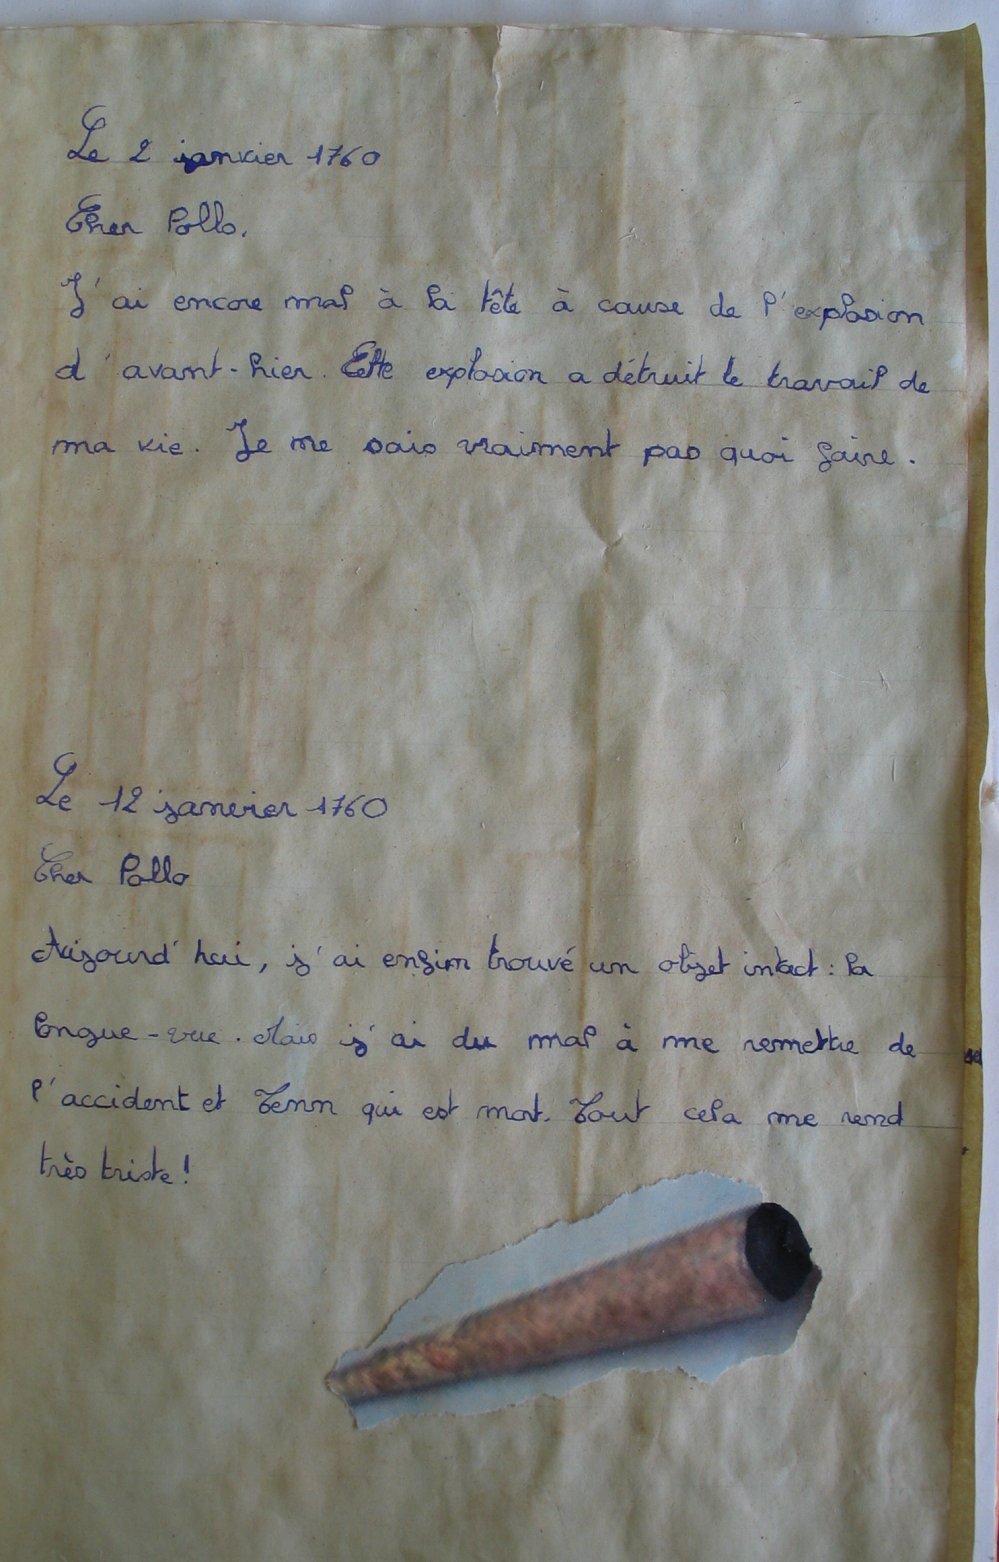 Le 2 janvier 1760
Cher Pollo,
J'ai encore mal à la tête à cause de l'explosion
d'avant-hier. Cette explosion a détruit le travail de
ma vie. Je ne sais vraiment pas quoi faire.
Le 12 janvier 1760
Cher Pollo
Aujourd'hui, j'ai enfin trouvé un objet intact : la
longue-vue. Mais j'ai du mal à me remettre de
l'accident et qui est mort. Tout cela me rend
très triste !